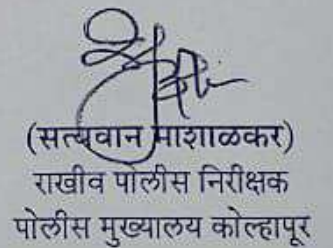 (सत्यवान माशाळकर)
राखीव पोलीस निरीक्षक
पोलीस मुख्यालय कोल्हापूर